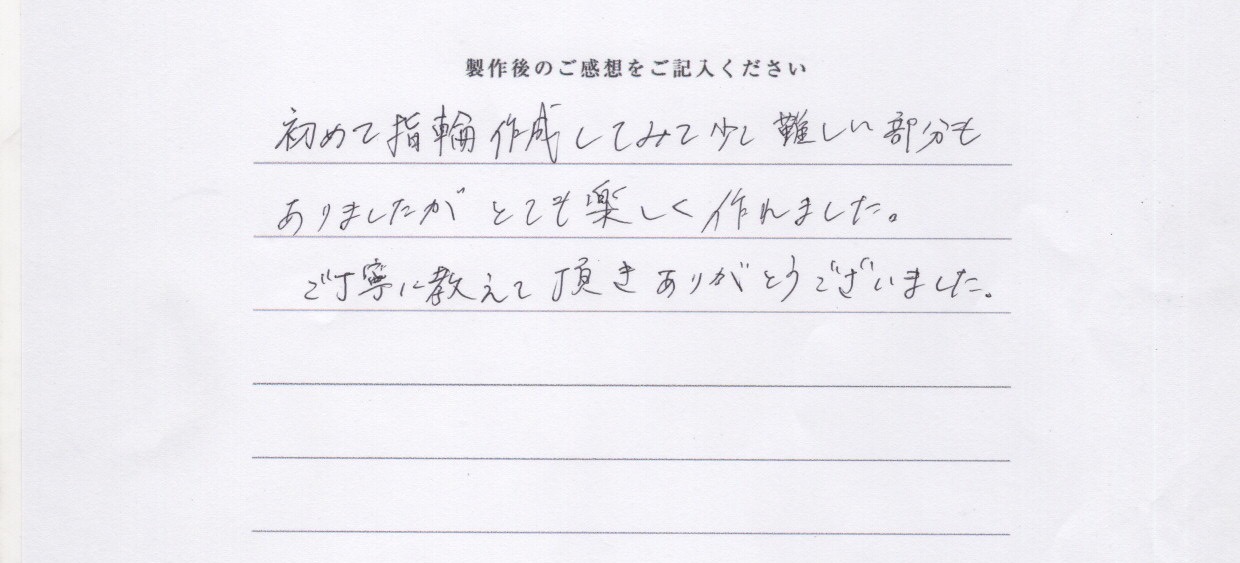 製作後のご感想をご記入ください
初めて指輪作成してみて少し難しい部分も
ありましたがとても楽しく作れました。
ご丁寧に教えて頂きありがとうございました。